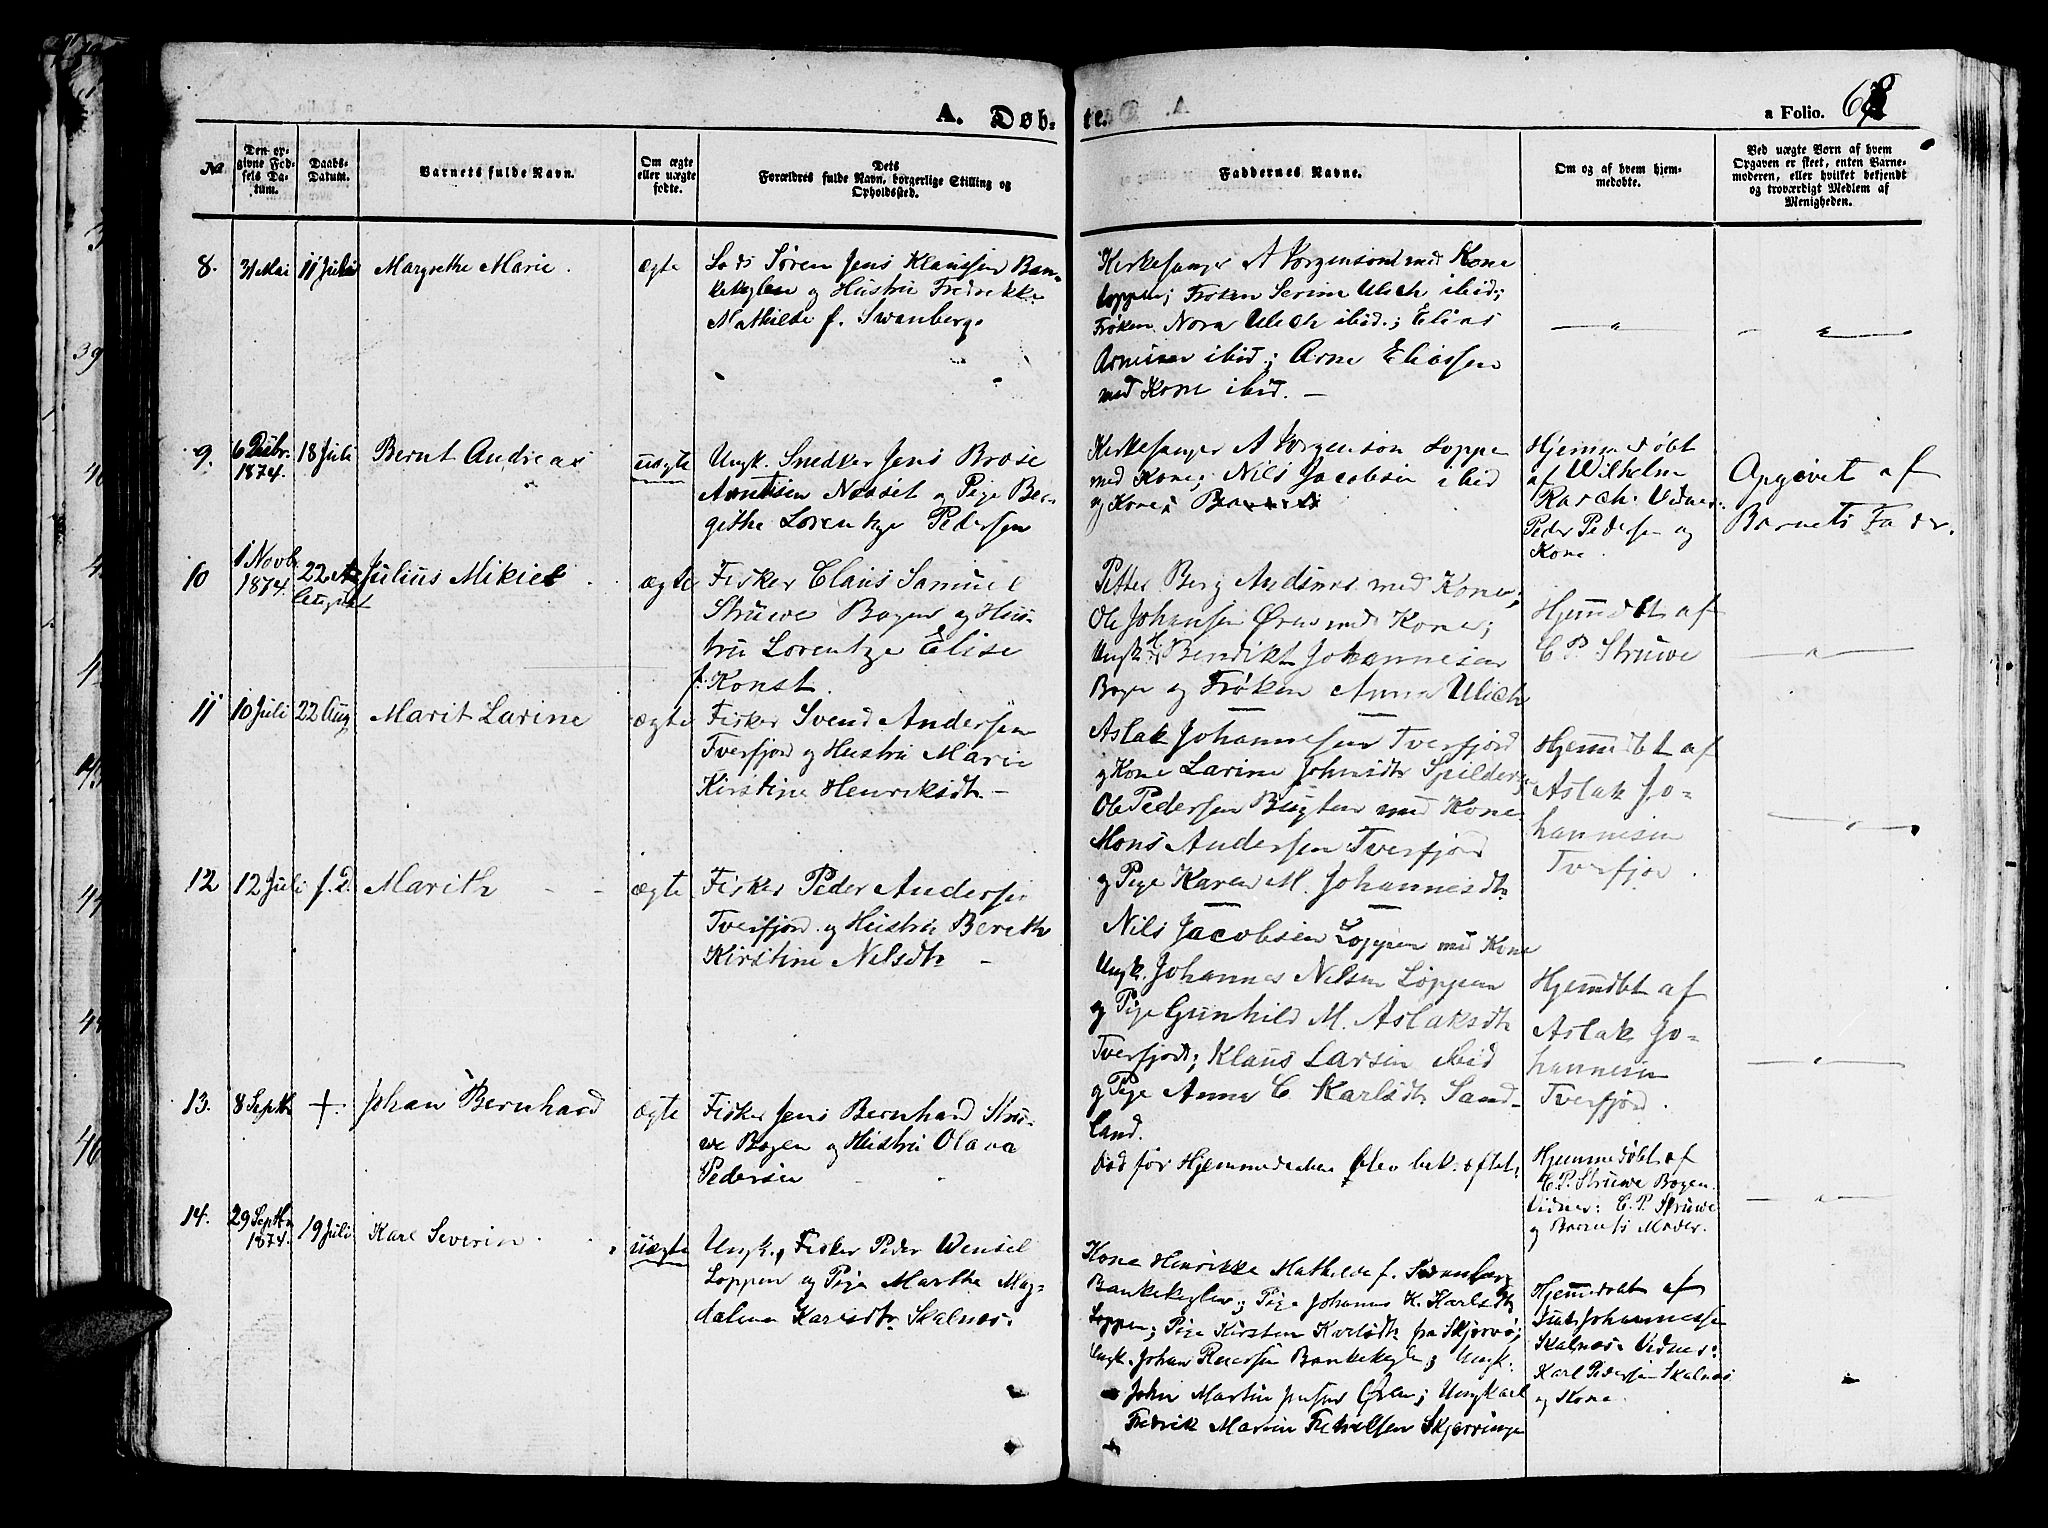 A. Døb-
te.
a Folio. 68
No.
Den op-
givne Fød-
sels Da-
tum.
Daabs-
Datum.
Barnets fulde Navn.
Om ægte
eller uægte
fødte.
Dets
Forældres fulde Navn, borgerlige Stilling og
Opholdssted.
Faddernes Navne.
Om og af hvem hjem-
medøbte.
Ved uægte Børn af hvem
Opgaven er skeet, enten Barne-
moderen, eller hvilket bekjendt
og troværdigt Medlem af
Menigheden.
8.
31 Mai
11 Juli
Margrethe Marie.
ægte
Lods Søren Jens Klaussen Ban-
kekeglen og Hustru Fredrikke
Mathilde f. Swanberg.
Kirkesanger A Jørgensen med Kone
Loppen; Frøken Serine Ulich ibid;
Frøken Nora Ulich ibid.; Elias
Arnesen ibid; Arne Eliassen
med Kone ibid. —
9.
6 Debr.
1874.
18 Juli
Bernt Andreas
uægte
Ungk. Snedker Jens Brose
Arntsen Næsset og Pige Ber-
githe Lorentze Pedersen
Kirkesanger A Jørgenson Loppe
med Kone; Nils Jacobsen ibid
og Kone;
Hjemmedøbt
af Wilhelm
Rasch. Vidner:
Peder Pedersen og
Kone.
Opgivet af
Barnets Fader.
10
1 Novbr
1874.
22 de
August
Julius Mikiel
ægte
Fisker Claus Samuel
Struwe Bogen og Hus-
tru Lorentze Elise
f. Konst.
Petter Berg Andsnes med Kone;
Ole Johansen Øren med Kone;
Ungk. Bendikt Johannesen
Bogen og Frøken Anna Ulich
Hjemdbt af
C. P. Struwe
11
10 Juli
22 Aug
Marit Larine
ægte
Fisker Svend Andersen
Tverfjord og Hustru Marie
Kirstine Henriksdtr. —
Aslak Johannesen Tverfjord
og Kone Larine Johnsdtr Spildern
Ole Pedersen Bugten med Kone
Mons Andersen Tverfjord
og Pige Karen M. Johannesdtr
Hjemmdbt af
Aslak Jo-
hannesen
Tverfjor.
12
12 Juli
f. D.
Marith
ægte
Fisker Peder Andersen
Tverfjord og Hustru Bereth
Kirstine Nilsdtr —
Nils Jacobsen Loppen med Kone
Ungk. Johannes Nilsen Loppen
og Pige Gunhild M. Aslaksdtr
Tverfjord; Klaus Larsen ibid
og Pige Anna C. Karlsdtr Sand-
land.
Hjemdbt af
Aslak Jo-
hannesen
Tverfjord.
13.
8 Septbr
+.
Johan Bernhard
ægte
Fisker Jens Bernhard Stru-
we Bogen og Hustru Olava
Pedersen
Død før Hjemmedaaben blev bekræftet.
Hjemmedøbt af
C. P. Struwe Bogen.
Vidner: C. P. Struwe
og Barnets Moder.
14.
29 Septbr
1874.
19 Juli
Karl Severin
uægte
Ungk. Fisker Peder Wensel
Loppen og Pige Marthe Mag-
dalena Karlsdtr Skalnæs.
Kone Henrikke Mathilde f. Svanberg
Bankekeglen; Pige Johanna K. Karlsdtr
Loppen; Pige Kirsten Karlsdtr fra Skjervø;
Ungk. Johan Bankekeglen; Ungk.
John Martin Jensen Øren; Ungkarl
Fredrik Martin Skjerringe
Hjemmedøbt af
Johannessen
Skalnæs. Vidner:
Karl Pedersen Skalnæs
og Kone.